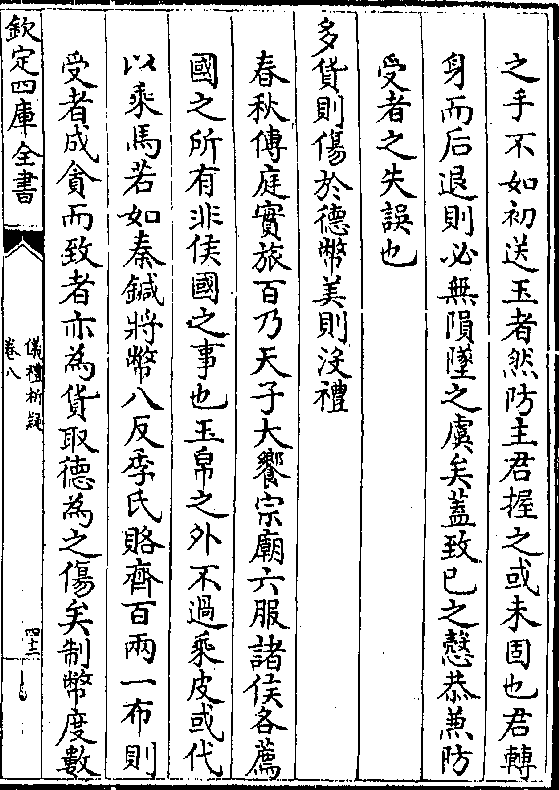 之手不如初送玉者然防主君握之或未固也君轉
身而后退則必無隕墜之虞矣蓋致已之慤恭兼防
受者之失誤也
多貨則傷於德幣美則沒禮
春秋傳庭實旅百乃天子大饗宗廟六服諸侯各薦
國之所有非侯國之事也玉帛之外不過乘皮或代
以乘馬若如秦鍼將幣八反季氏賂齊百兩一布則
受者成貪而致者亦為貨取德為之傷矣制幣度數
欽定四庫全書
儀禮析疑
卷八
四十三